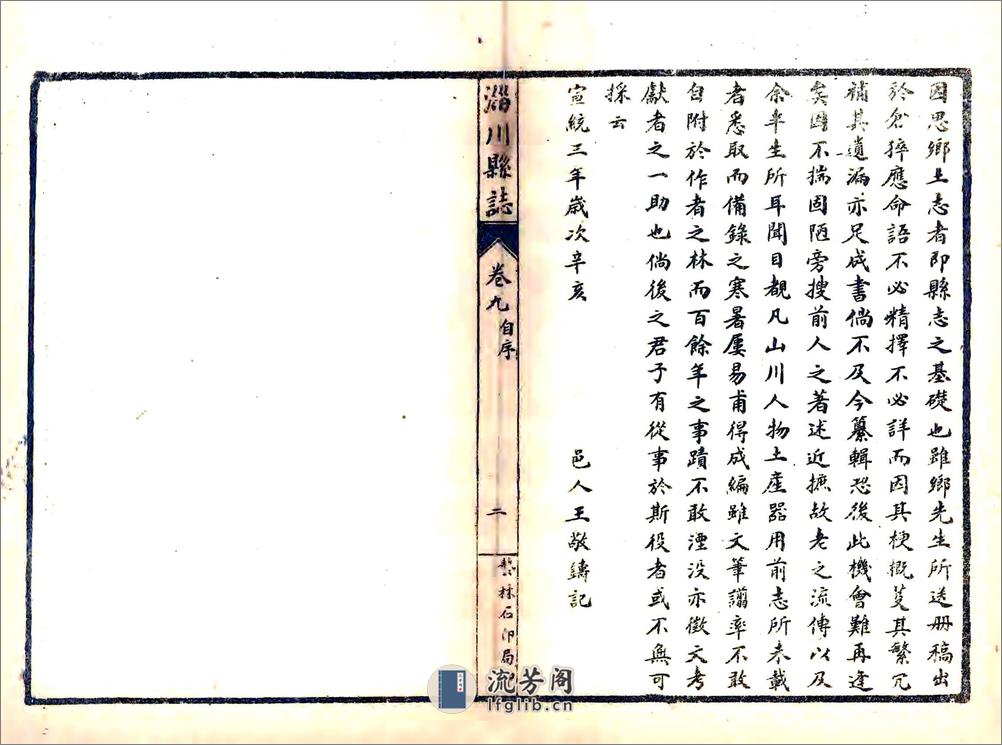 因思鄉土志者即縣志之基礎也雖鄉先生所送册稿出
於倉猝應命語不必精擇不必詳而因其梗概芟其繁冗
補其遺漏亦足成書倘不及今纂輯恐後此機會難再逢
矣因不揣固陋旁搜前人之著述近摭故老之流傳以及
余半生所耳聞目覩凡山川人物土產器用前志所未載
者悉取而備錄之寒暑屢易甫得成編雖文筆譾率不敢
自附於作者之林而百餘年之事蹟不敢湮没亦徵文考
獻者之一助也倘後之君子有從事於斯役者或不無可
採云
宣統三年歲次辛亥
邑人王敬鑄記
淄川縣誌
卷九
自序
二
林石印局
流芳阁
lfglib.cn